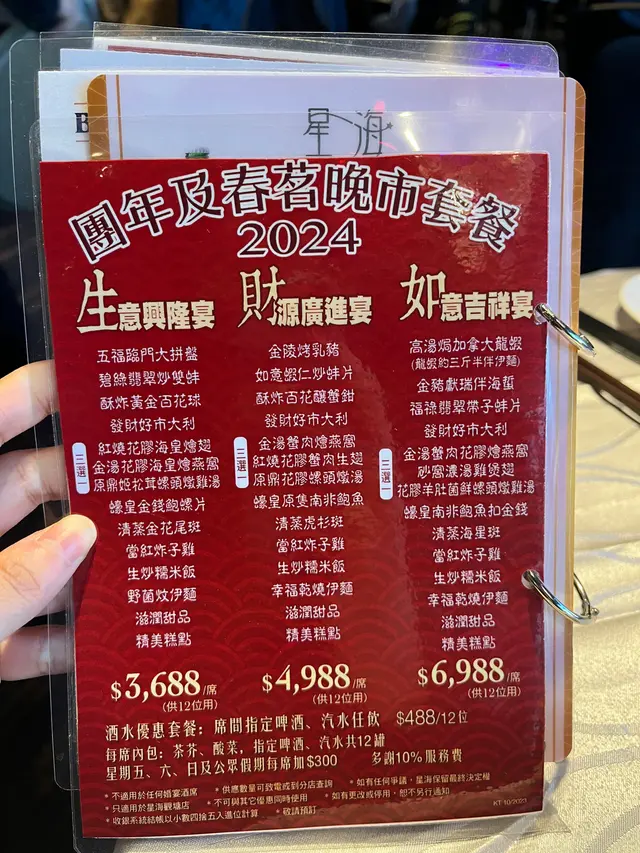 星海
團年及春茗晚市套餐
2024
生意興隆宴
五福臨門大拼盤
碧綠翡翠炒雙蚌
酥炸黃金百花球
發財好市大利
三選一
紅燒花膠海皇燴翅
金湯花膠海皇燴燕窩
原鼎姬松茸螺頭燉雞湯
蠔皇金錢鮑螺片
清蒸金花尾斑
當紅炸子雞
生炒糯米飯
野菌炆伊麵
滋潤甜品
精美糕點
$3,688/席
(供12位用)
財源廣進宴
金陵烤乳豬
如意蝦仁炒蚌片
酥炸百花釀蟹鉗
發財好市大利
三選一
金湯蟹肉燴燕窩
紅燒花膠蟹肉生翅
原鼎花膠螺頭燉雞湯
蠔皇原隻南非鮑魚
清蒸虎杉斑
當紅炸子雞
生炒糯米飯
幸福乾燒伊麵
滋潤甜品
精美糕點
$4,988/席
(供12位用)
如意吉祥宴
高湯焗加拿大龍蝦
(龍蝦約三斤半伴伊麵)
金豬獻瑞伴海蜇
福祿翡翠帶子蚌片
發財好市大利
三選一
金湯蟹肉花膠燴燕窩
砂窩濃湯雞煲翅
花膠羊肚菌鮮螺頭燉雞湯
蠔皇南非鮑魚扣金錢
清蒸海星斑
當紅炸子雞
生炒糯米飯
幸福乾燒伊麵
滋潤甜品
精美糕點
$6,988/席
(供12位用)
酒水優惠套餐：席間指定啤酒、汽水任飲 $488/12位
每席內包：茶芥、酸菜，指定啤酒、汽水共12罐
星期五、六、日及公眾假期每席加$300 多謝10%服務費
•不適用於任何婚宴酒席 •供應數量可致電或到分店查詢 •如有任何爭議，星海保留最終決定權
•只適用於星海觀塘店 •不可與其它優惠同時使用 •如有更改或停用，恕不另行通知
•收銀系統結帳以小數四捨五入進位計算 •敬請預訂
KT 10/2023